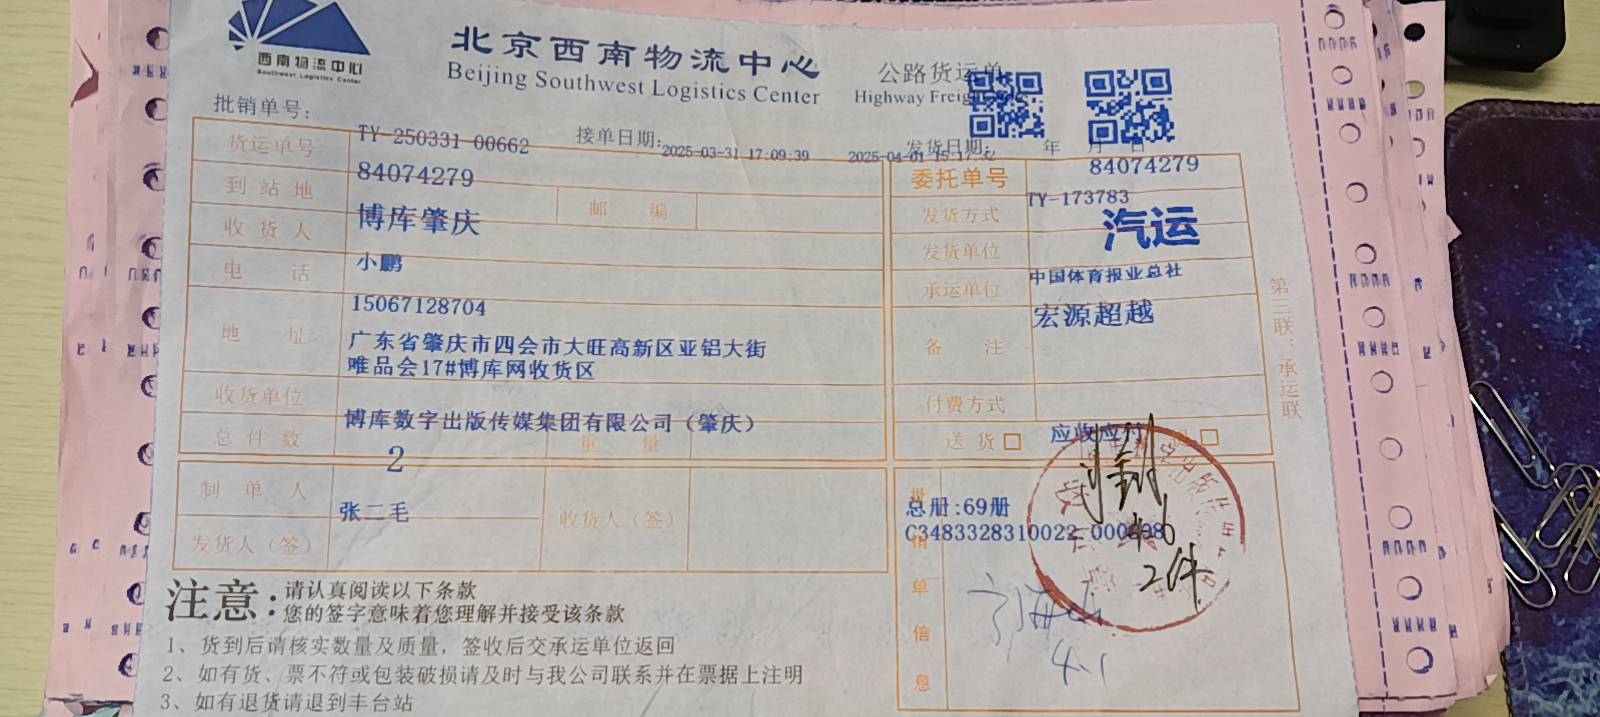 西南物流中心
Southwest Logistics Center
北京西南物流中心
Beijing Southwest Logistics Center
公路货运单
Highway Freight
批销单号:
TY-250331-00662
接单日期:
2025-03-31 17:09:39
发货日期: 年 月 日
2025-04-01 15:17:52
货运单号
84074279
委托单号
84074279
TY-173783
到站地
博库肇庆
邮 编
发货方式
汽运
收货人
小鹏
发货单位
中国体育报业总社
电 话
15067128704
承运单位
宏源超越
地 址
广东省肇庆市四会市大旺高新区亚铝大街
唯品会17#博库网收货区
备 注
收货单位
博库数字出版传媒集团有限公司（肇庆）
付费方式
应收应付
总件数
2
重 量
送 货
制单人
张二毛
收货人（签）
发货人（签）
批销单信息
总册:69册
2件
4-1
第三联：承运联
注意:
请认真阅读以下条款
您的签字意味着您理解并接受该条款
1、货到后请核实数量及质量，签收后交承运单位返回
2、如有货、票不符或包装破损请及时与我公司联系并在票据上注明
3、如有退货请退到丰台站